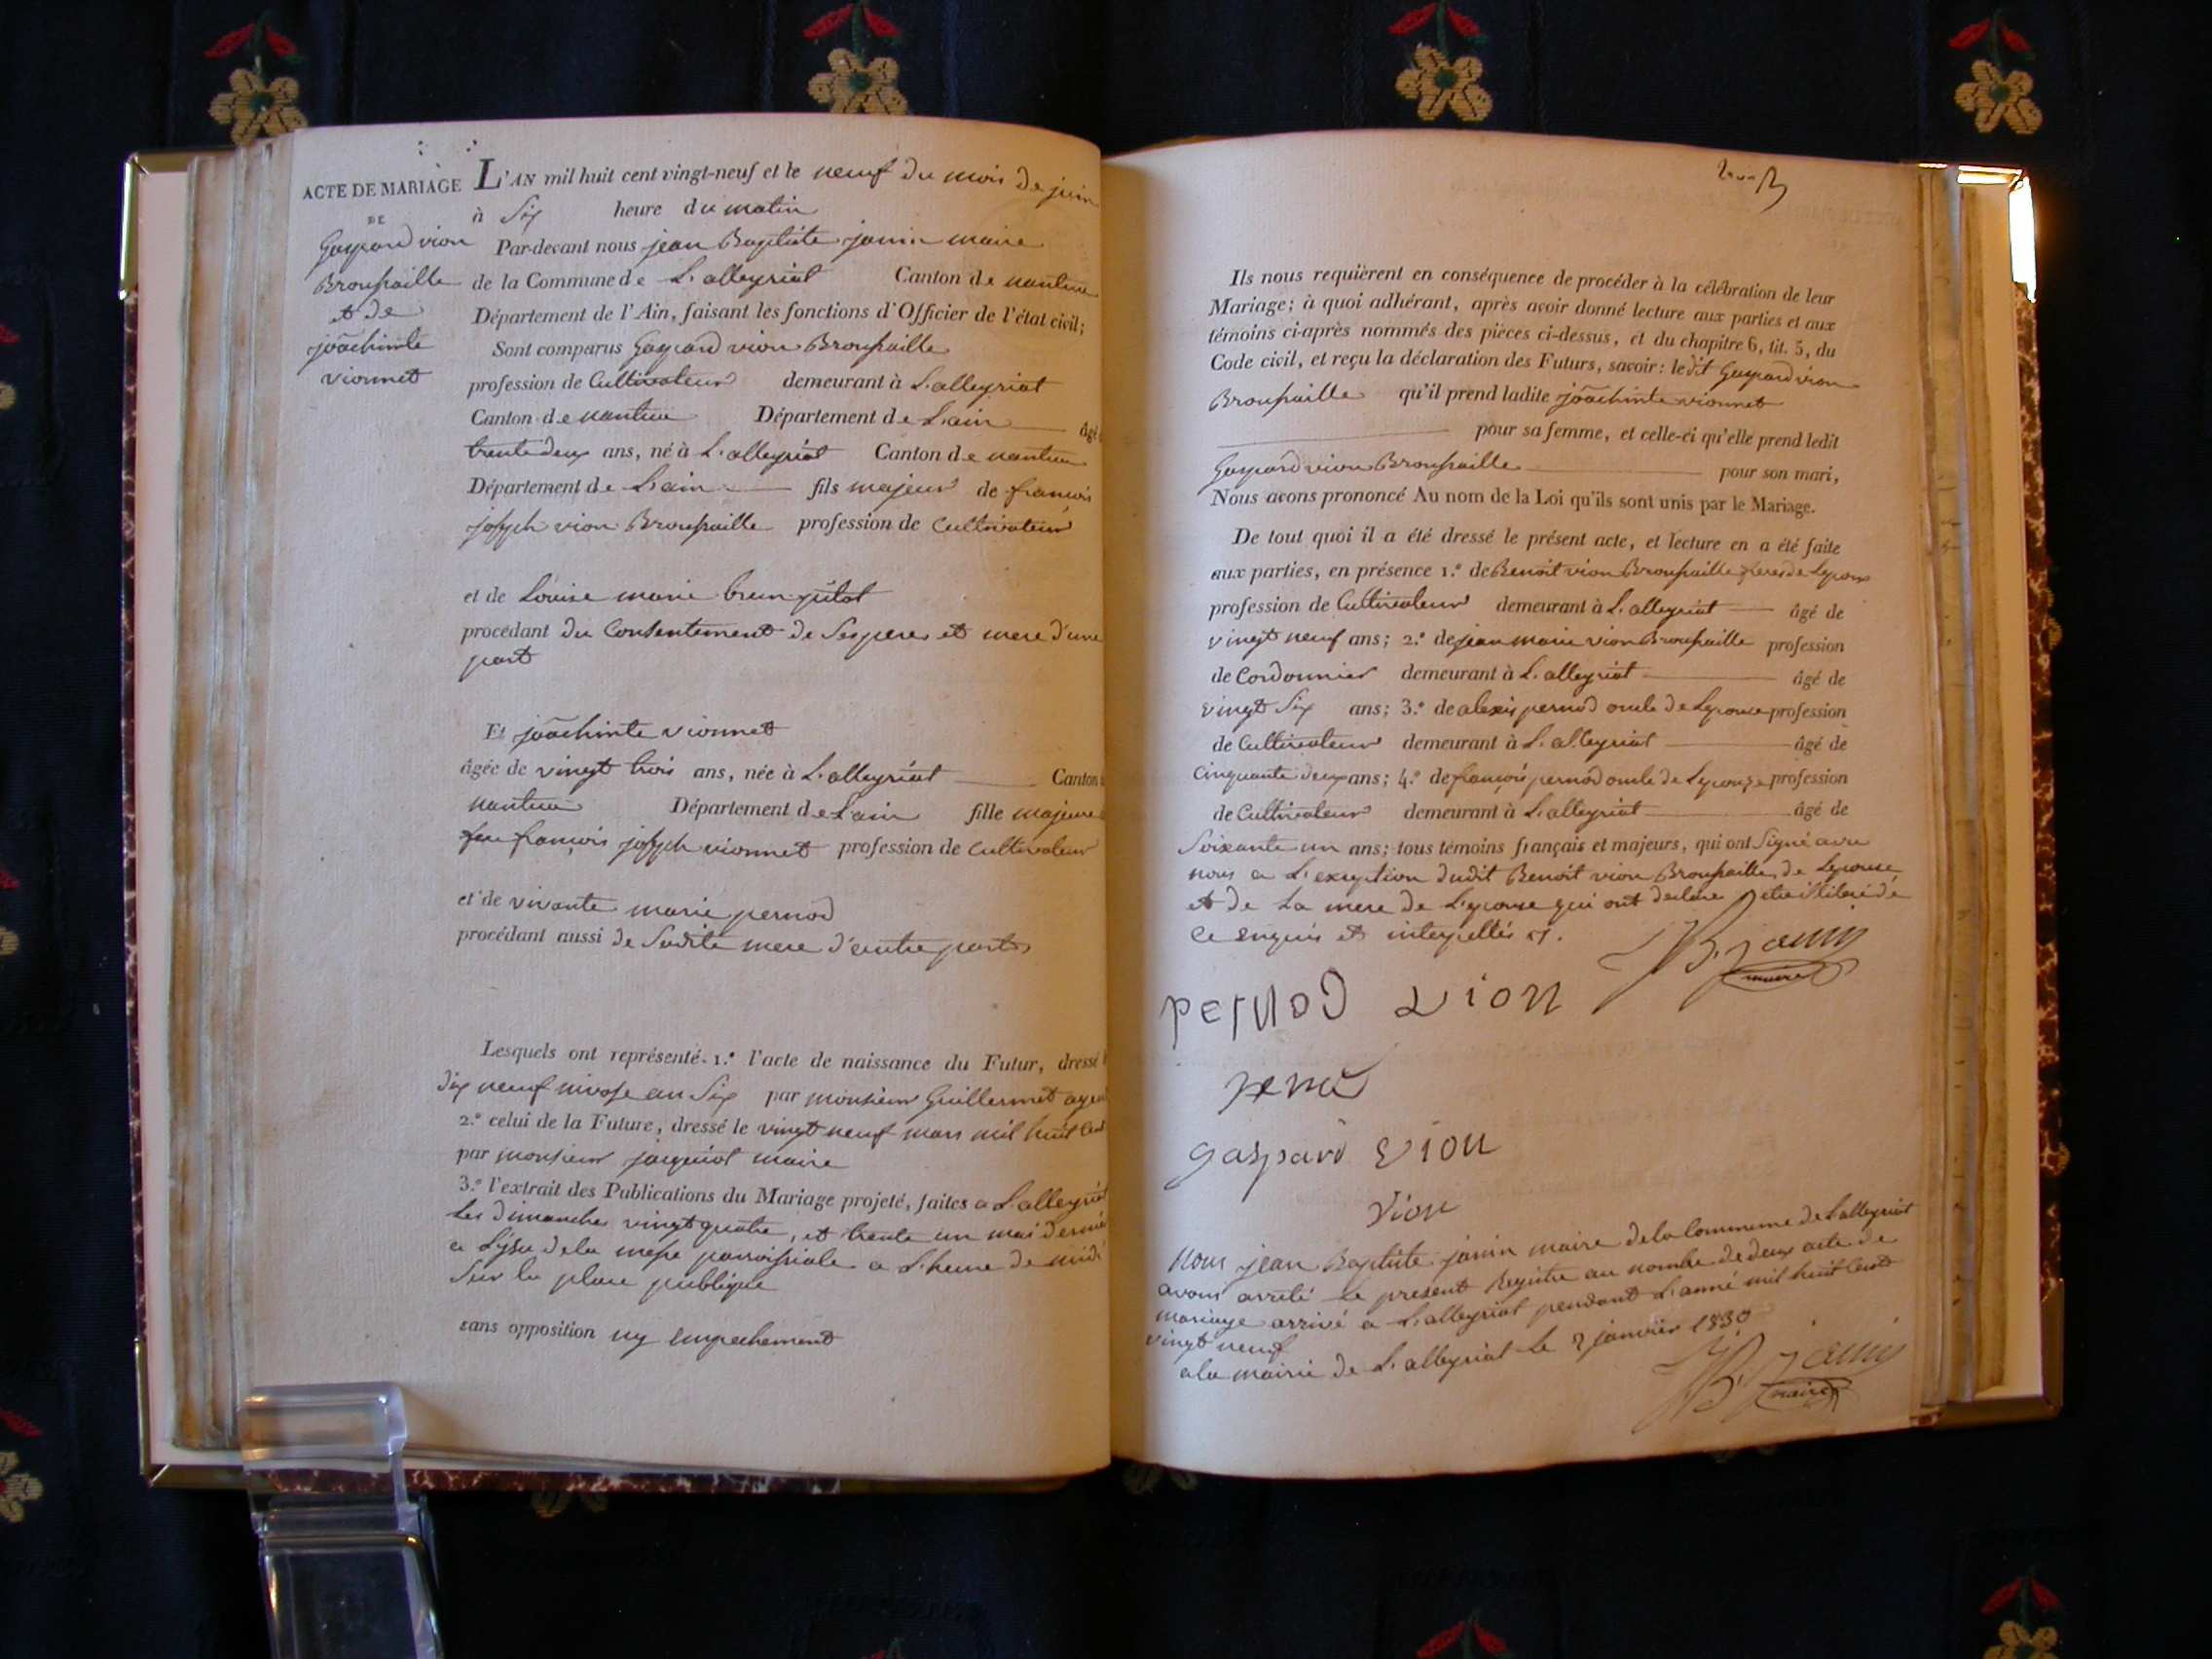 ACTE DE MARIAGE
DE
Gaspard vion
Broussaille
et de
joachinte
vionnet
L'AN mil huit cent vingt-neuf et le neuf du mois de juin
à Six heure du matin
Par-devant nous jean Baptiste janin maire
de la Commune de L'alleyriat Canton de nantua
Département de l'Ain, faisant les fonctions d'Officier de l'état civil;
Sont comparus Gaspard vion Broussaille
profession de Cultivateur demeurant à L'alleyriat
Canton de nantua Département de L'ain âgé
trente deux ans, né à L'alleyriat Canton de nantua
Département de L'ain fils majeur de françois
joseph vion Broussaille profession de Cultivateur
et de Louise marie brun
procédant du Consentement de Ses peres et mere d'une
part
Et joachinte vionnet
âgée de vingt trois ans, née à L'alleyriat Canton
nantua Département de L'ain fille majeure
feu françois joseph vionnet profession de Cultivateur
et de vivante marie pernod
procédant aussi de Sadite mere d'autre part
Lesquels ont représenté. 1.° l'acte de naissance du Futur, dressé
dix neuf nivose an Six par monsieur Guillermet
2.° celui de la Future, dressé le vingt neuf mars mil huit Cent
par monsieur jacquiot maire
3.° l'extrait des Publications du Mariage projeté, faites a L'alleyriat
Les dimanches vingt quatre, et trente un mai dernier
a L'issu de la messe parroissiale a L'heure de midi
Sur la place publique
sans opposition ny empechement
Ils nous requièrent en conséquence de procéder à la célébration de leur
Mariage; à quoi adhérant, après avoir donné lecture aux parties et aux
témoins ci-après nommés des pièces ci-dessus, et du chapitre 6, tit. 5, du
Code civil, et reçu la déclaration des Futurs, savoir: ledit Gaspard vion
Broussaille qu'il prend ladite joachinte vionnet
pour sa femme, et celle-ci qu'elle prend ledit
Gaspard vion Broussaille pour son mari,
Nous avons prononcé Au nom de la Loi qu'ils sont unis par le Mariage.
De tout quoi il a été dressé le présent acte, et lecture en a été faite
aux parties, en présence 1.° de Benoit vion Broussaille
profession de Cultivateur demeurant à L'alleyriat âgé de
vingt neuf ans; 2.° de jean marie vion Broussaille profession
de Cordonnier demeurant à L'alleyriat âgé de
vingt Six ans; 3.° de alexis pernod oncle de Lepouse profession
de Cultivateur demeurant à L'alleyriat âgé de
Cinquante deux ans; 4.° de françois pernod oncle de Lepouse profession
de Cultivateur demeurant à L'alleyriat âgé de
Soixante un ans; tous témoins français et majeurs, qui ont Signé avec
nous a L'exeption dudit Benoit vion Broussaille, de Lepouse
et de La mere de Lepouse qui ont declare etre illiteré de
ce enquis et interpellés
JB. Janin
maire
pernod vion
gaspard vion
vion
Nous jean Baptiste janin maire de la Commune de L'alleyriat
avons arreté le present Registre au nombre de deux acte de
mariage arrivé a L'alleyriat pendant L'anné mil huit Cent
vingt neuf
a la mairie de L'alleyriat Le janvier 1830
JB. Janin
maire